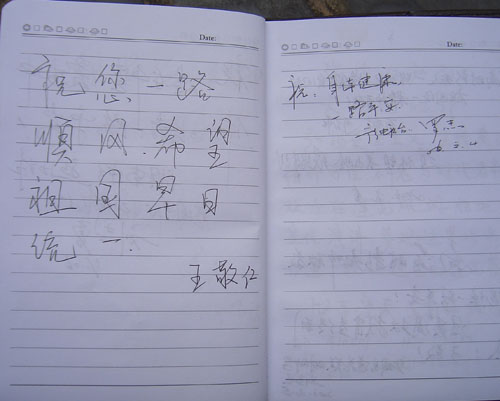 Date:
祝您一路
顺风.希望
祖国早日
统一.
王敬仁
Date:
祝:身体健康
一路平安